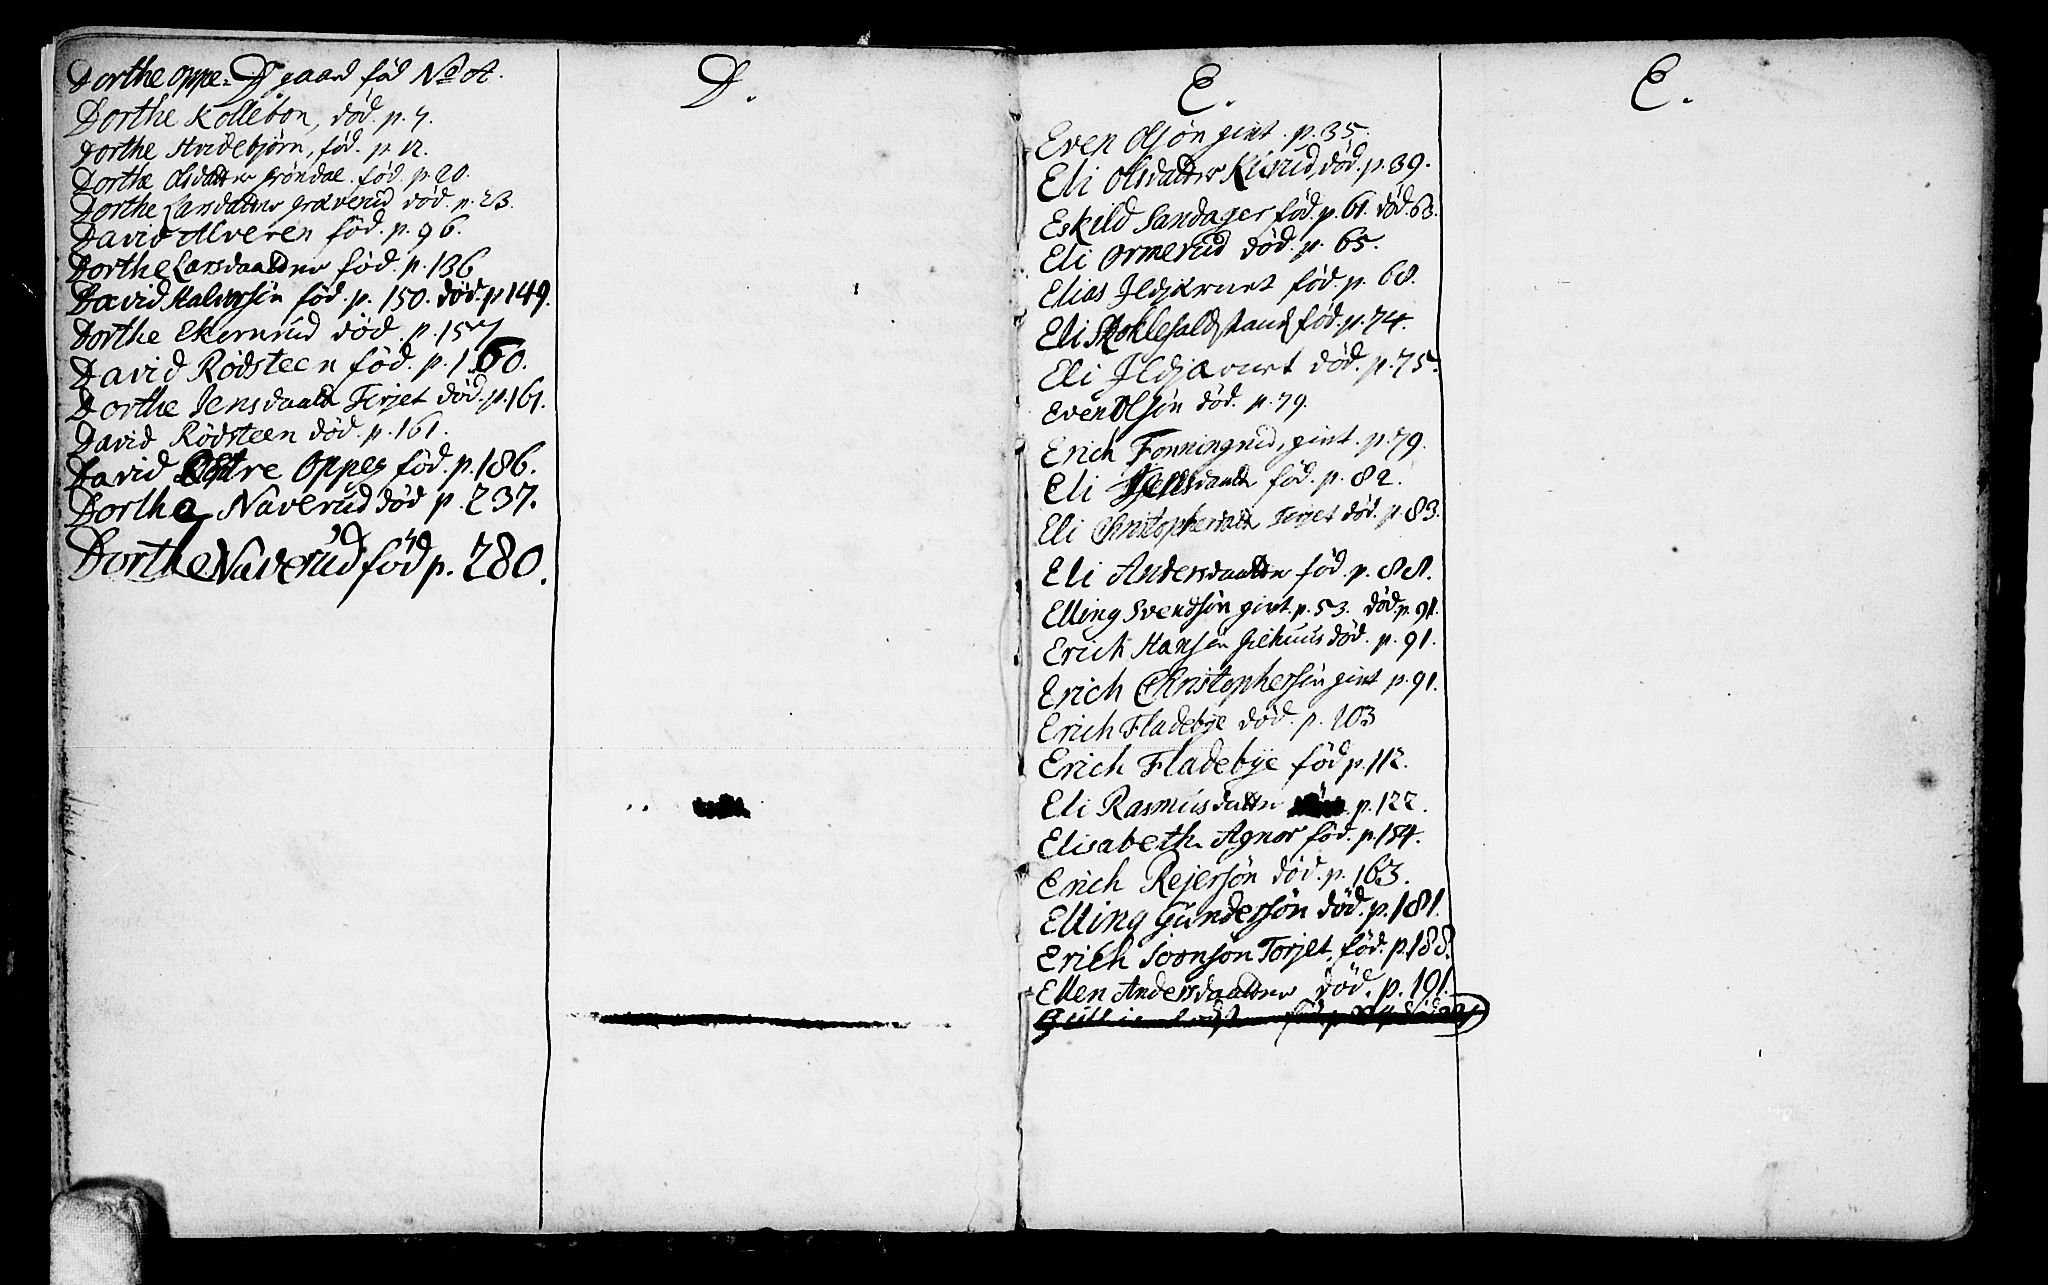 D.
Dorthe Oppe=gaard fød No A.
Dorthe Kollebon, død. p. 7.
Dorthe Hvidebjørn, fød. p. 12.
Dorthe Olsdatter Grøndal. fød. p. 20.
Dorthe Larsdatter Græverud død. p. 23.
David Alveren fød. p. 96.
Dorthe Larsdaatter fød. p. 136
David Halvorsøn fød. p. 150. død. p 149.
Dorthe Ekernrud død. p. 157
David Rødsteen fød. p. 160.
Dorthe Jensdaatt Terjet død. p. 161.
David Rødsteen død. p. 161.
David Østre Oppeg fød. p. 186.
Dorthe Naverud død p. 237.
Dorthe Naverud fød p. 280.
D.
E.
Even Olsøn givt. p. 35.
Eli Olsdatter Kinrud, død. p. 39.
Eskild Sandager fød. p. 61. død. 63.
Eli Ormerud død. p. 65.
Elias Ildjernet fød. p. 68.
Eli fød. p. 74.
Eli Ildjernet død. p. 75.
Even Olsøn død. p. 79.
Erich Fonningrud, givt. p. 79.
Eli Jensdaatt fød. p. 82.
Eli Christophersdatt Terjet død. p 83.
Eli Andersdaatter fød. p. 88.
Elling Svendsøn givt. p. 53. død. p. 91.
Erich Hansen død. p. 91.
Erich Christophersøn givt p. 91.
Erich Fladebye død. p. 103
Erich Fladebye fød p. 112.
Eli Rasmusdatter p. 122.
Elisabeth Agnor fød. p. 154.
Erich Rejersøn død. p. 163.
Elling Gundersøn død. p. 181.
Erich Torjet. fød. p. 188.
Ellen Andersdaatter død. p. 191.
E.